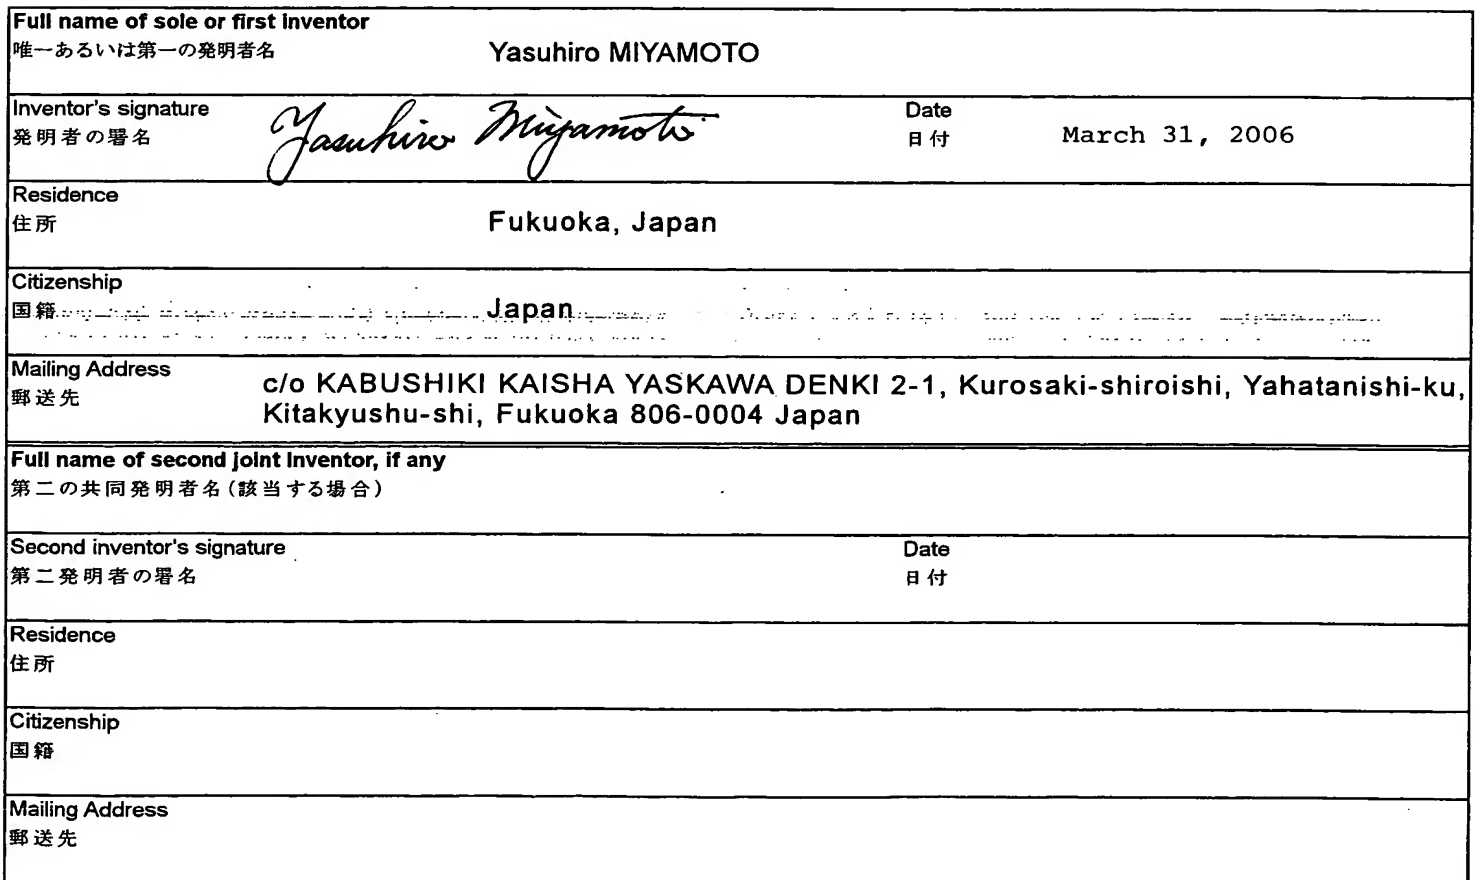 Full name of sole or first inventor
唯一あるいは第一の発明者名
Yasuhiro MIYAMOTO
Inventor's signature
発明者の署名
Yasuhiro Miyamoto
Date
日付
March 31, 2006
Residence
住所
Fukuoka, Japan
Citizenship
国籍
Japan
Mailing Address
郵送先
c/o KABUSHIKI KAISHA YASKAWA DENKI 2-1, Kurosaki-shiroishi, Yahatanishi-ku,
Kitakyushu-shi, Fukuoka 806-0004 Japan
Full name of second joint inventor, if any
第二の共同発明者名(該当する場合)
Second inventor's signature
第二発明者の署名
Date
日付
Residence
住所
Citizenship
国籍
Mailing Address
郵送先